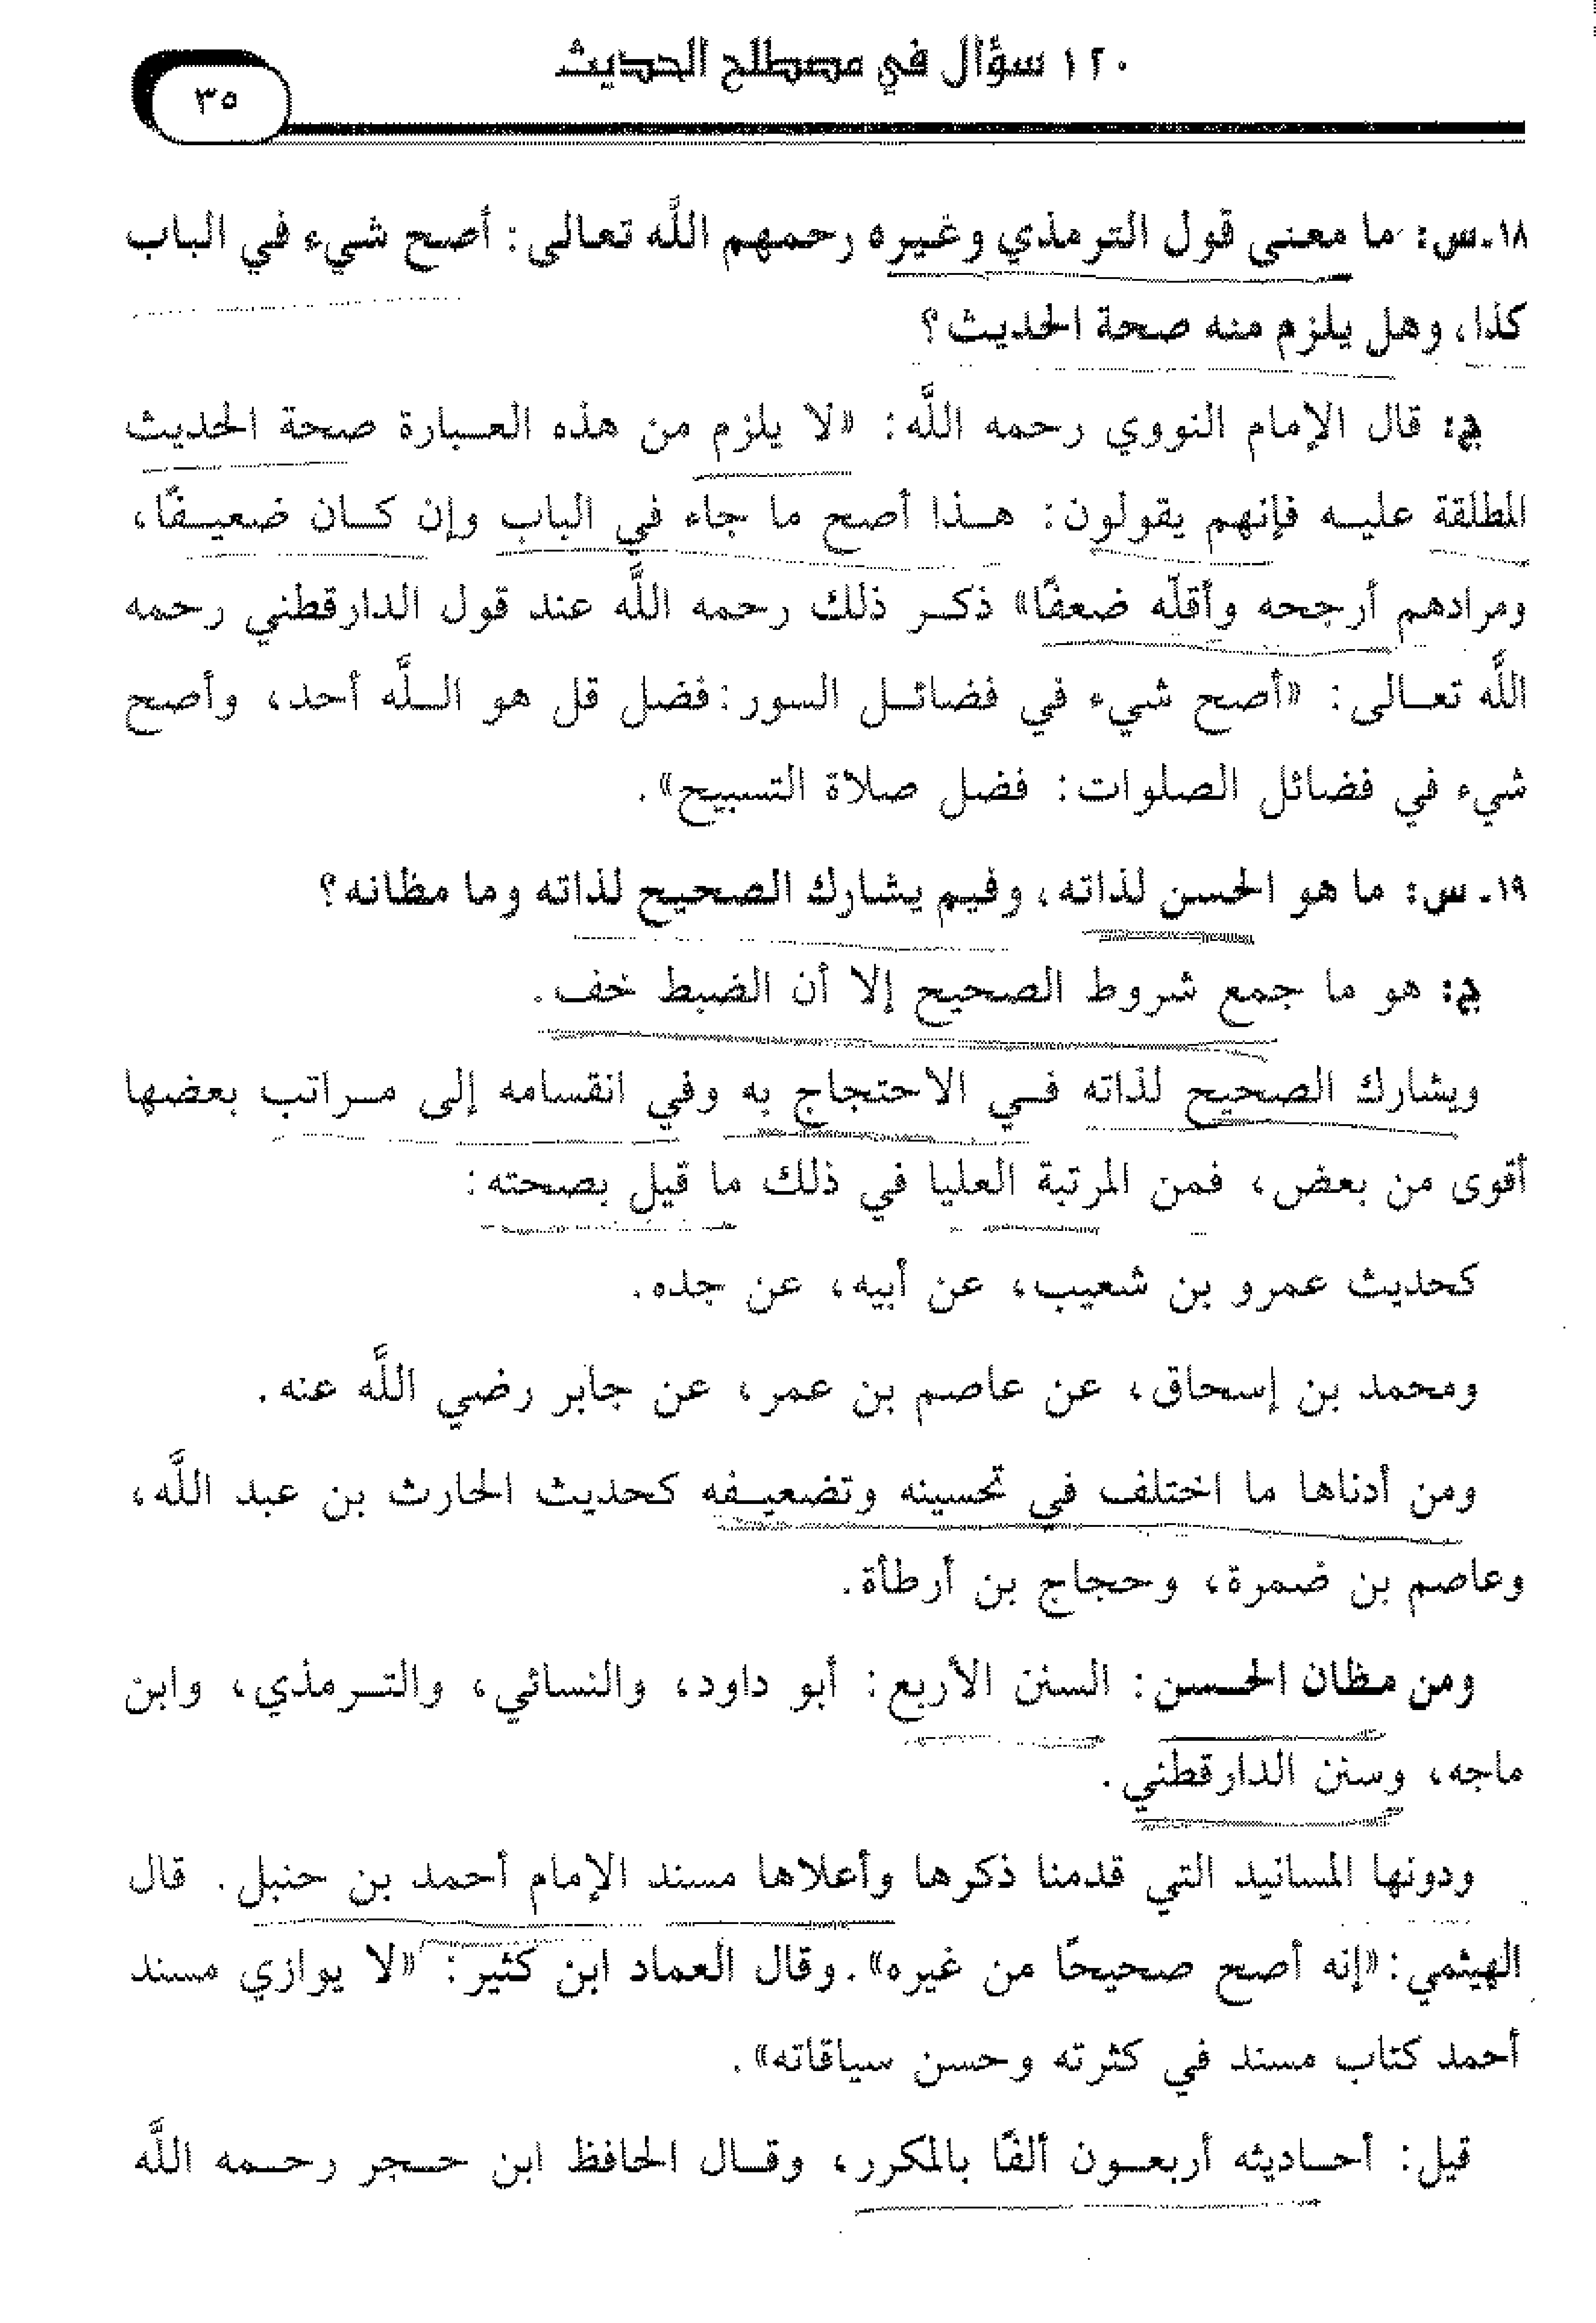 ١٢٠ سؤال في مصطلح الحديث
٣٥
١٨ـ س: ما معنى قول الترمذي وغيره رحمهم اللَّه تعالى: أصح شيء في الباب
كذا، وهل يلزم منه صحة الحديث؟
ج: قال الإمام النووي رحمه اللَّه: «لا يلزم من هذه العبارة صحة الحديث
المطلقة عليه فإنهم يقولون: هذا أصح ما جاء في الباب وإن كان ضعيفًا،
ومرادهم أرجحه وأقلّه ضعفًا» ذكر ذلك رحمه اللَّه عند قول الدارقطني رحمه
اللَّه تعالى: «أصح شيء في فضائل السور: فضل قل هو اللَّه أحد، وأصح
شيء في فضائل الصلوات: فضل صلاة التسبيح».
١٩ـ س: ما هو الحسن لذاته، وفيم يشارك الصحيح لذاته وما مظانه؟
ج: هو ما جمع شروط الصحيح إلا أن الضبط خف.
ويشارك الصحيح لذاته في الاحتجاج به وفي انقسامه إلى مراتب بعضها
أقوى من بعض، فمن المرتبة العليا في ذلك ما قيل بصحته:
كحديث عمرو بن شعيب، عن أبيه، عن جده.
ومحمد بن إسحاق، عن عاصم بن عمر، عن جابر رضي اللَّه عنه.
ومن أدناها ما اختلف في تحسينه وتضعيفه كحديث الحارث بن عبد اللَّه،
وعاصم بن ضمرة، وحجاج بن أرطأة.
ومن مظان الحسن: السنن الأربع: أبو داود، والنسائي، والترمذي، وابن
ماجه، وسنن الدارقطني.
ودونها المسانيد التي قدمنا ذكرها وأعلاها مسند الإمام أحمد بن حنبل. قال
الهيثمي: «إنه أصح صحيحًا من غيره». وقال العماد ابن كثير: «لا يوازي مسند
أحمد كتاب مسند في كثرته وحسن سياقاته».
قيل: أحاديثه أربعون ألفًا بالمكرر، وقال الحافظ ابن حجر رحمه اللَّه